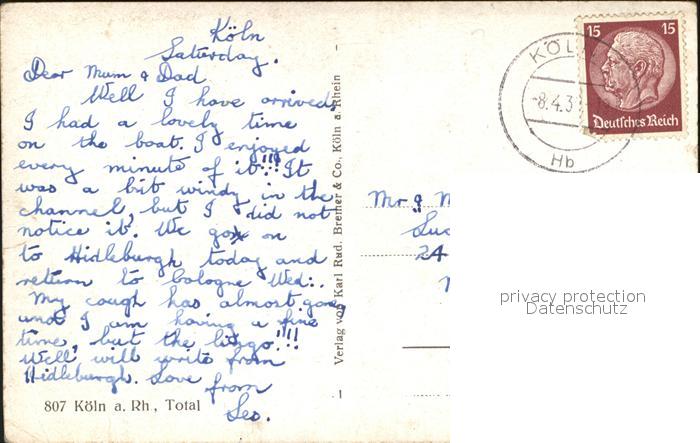 Köln
Saturday.
Dear Mum & Dad
Well I have arrived.
I had a lovely time
on the boat. I enjoyed
every minute of it!!! It
was a bit windy in the
channel, but I did not
notice it. We go on
to Hidleburgh today and
return to bologne Wed:.
My cough has almost gone
and I am having a fine
time, but the lingo!!!
Well will write from
Hidleburgh. Love
from
Les.
807 Köln a. Rh., Total
Verlag von Karl Rud. Bremer & Co., Köln a. Rhein
KÖL
-8.4.3
Hb
15 15
Deutsches Reich
Mr & M
24
privacy protection
Datenschutz